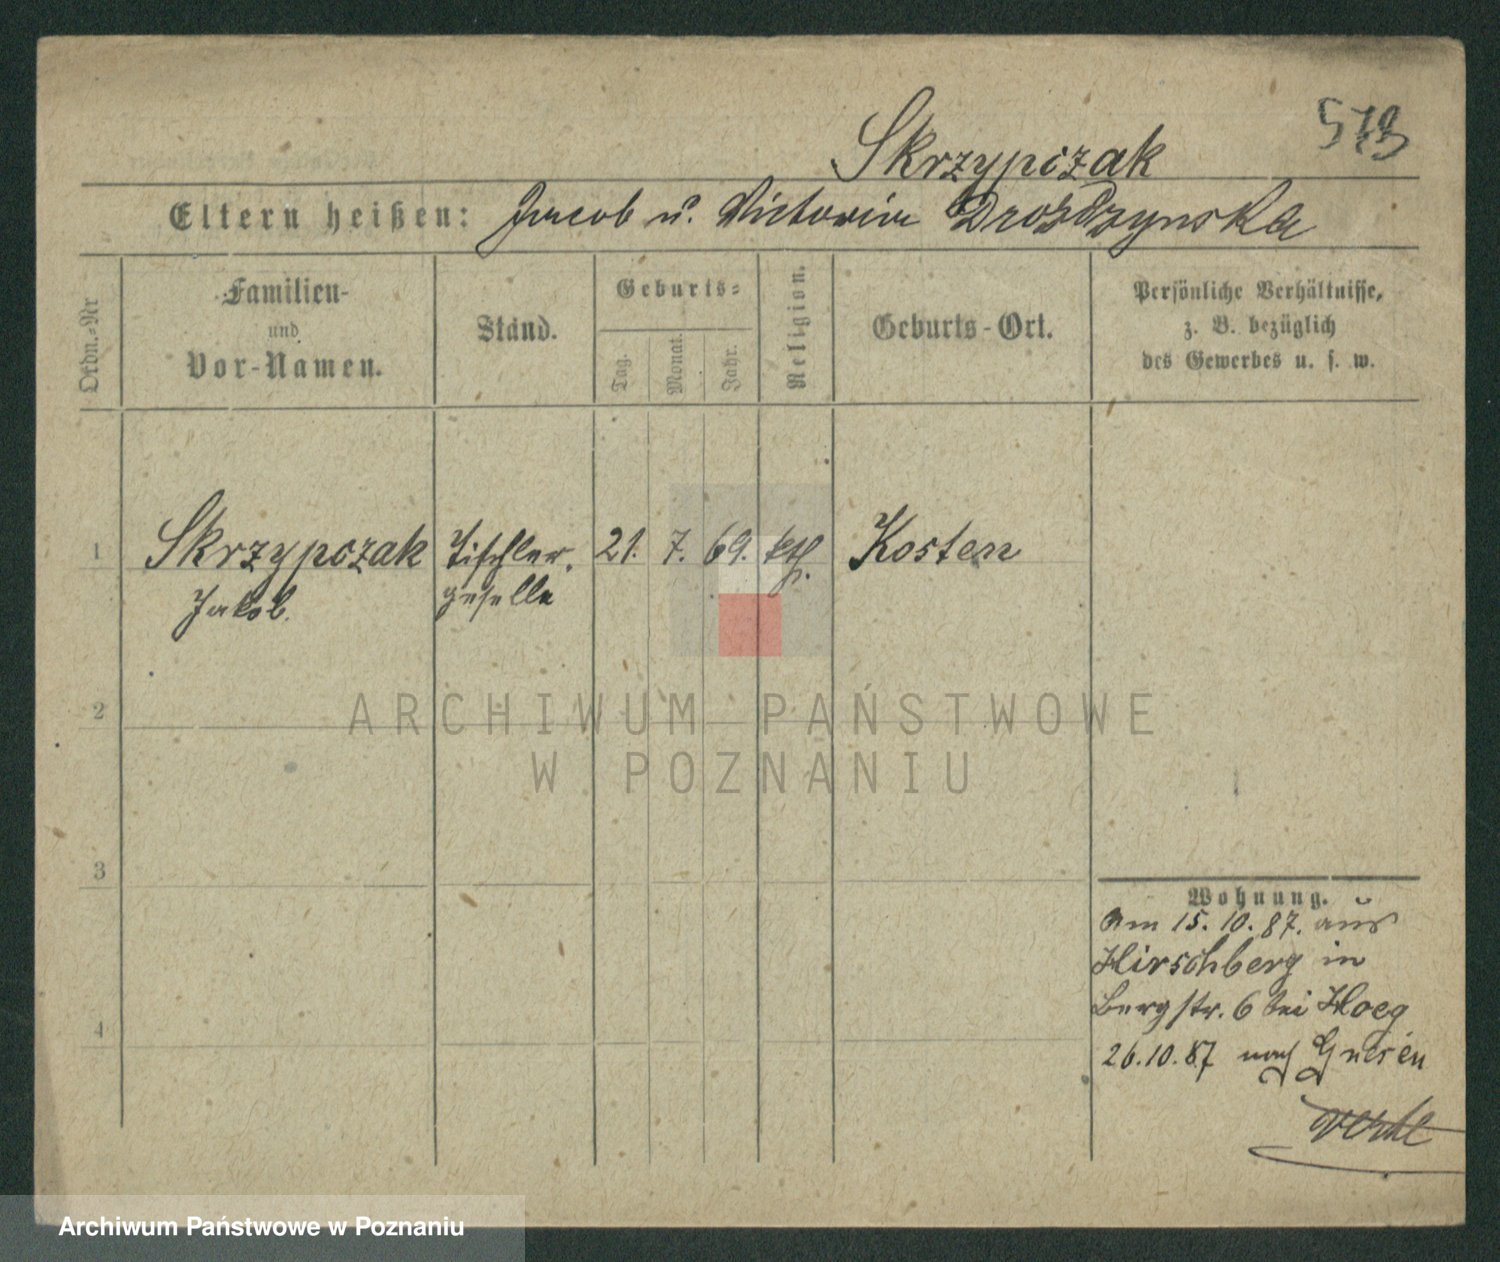 Skrzypczak
573
Eltern heißen: Jacob u. Victoria Drozdzynska
Ordn.-Nr
Familien-
und
Vor-Namen.
Stand.
Geburts-
Tag.
Monat.
Jahr.
Religion.
Geburts-Ort.
Persönliche Verhältnisse,
z. B. bezüglich
des Gewerbes u. s. w.
1 Skrzypczak Tischler- 21. 7. 69. kth. Kosten
Jakob. geselle
2
ARCHIWUM PAŃSTWOWE
W POZNANIU
3
Wohnung.
Am 15.10.87. aus
Hirschberg in
Bergstr. 6 bei Hoeg
4
26.10.87 nach Gnesen
Archiwum Państwowe w Poznaniu